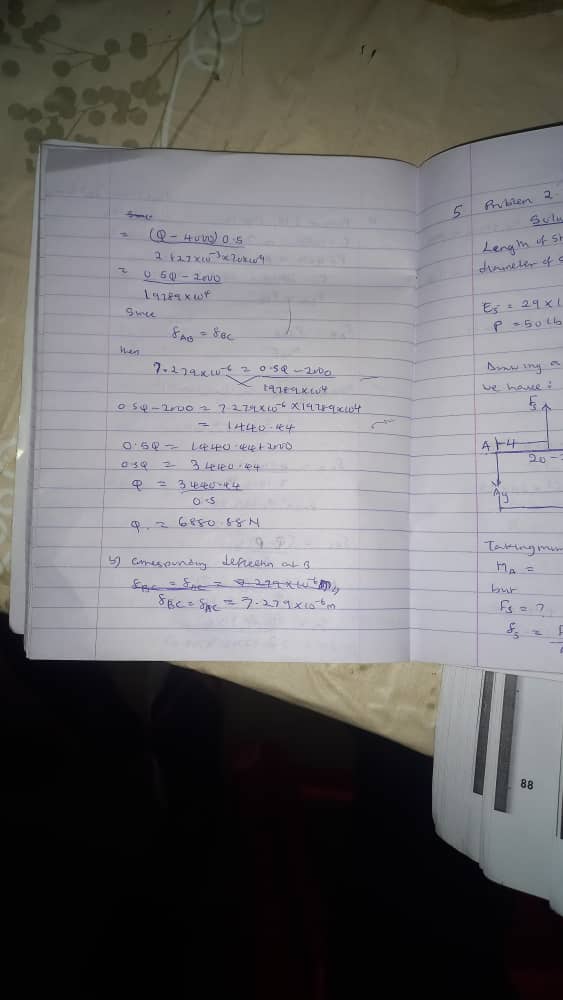 = (Q - 4000) 0.5
2.827×10⁻³×70×10⁹
= 0.5Q - 2000
19789×10⁴
Since
δAB = δBC
then
7.279×10⁻⁶ = 0.5Q - 2000
19789×10⁴
0.5Q - 2000 = 7.279×10⁻⁶ × 19789×10⁴
= 1440.44
0.5Q = 1440.44 + 2000
0.5Q = 3440.44
Q = 3440.44
0.5
Q = 6880.88N
b) corresponding deflection at B
δBC = δAC = 7.279×10⁻⁶m
5. Problem 2.
Length of
diameter of
Es = 29 ×
P = 50 lb
Drawing a
we have:
Fs
A 4
20
Ay
Taking
MA =
but
Fs = ?
δs =
88